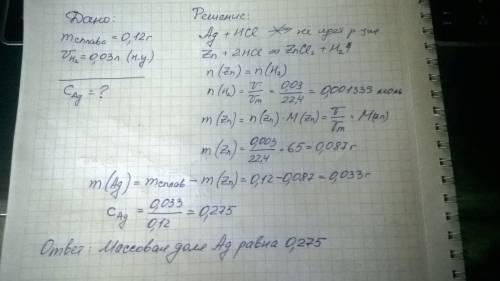 Дано:
mсплава = 0,12г
VH₂ = 0,03л (н.у)
CAg = ?
Решение:
Ag + HCl не идет р-ция
Zn + 2HCl = ZnCl₂ + H₂↑
n(Zn) = n(H₂)
n(H₂) = V/Vm = 0,03/22,4 = 0,001339 моль
m(Zn) = n(Zn) · M(Zn) = V/Vm · M(Zn)
m(Zn) = 0,003/22,4 · 65 = 0,087г
m(Ag) = mсплав - m(Zn) = 0,12 - 0,087 = 0,033г
CAg = 0,033/0,12 = 0,275
Ответ: Массовая доля Ag равна 0,275